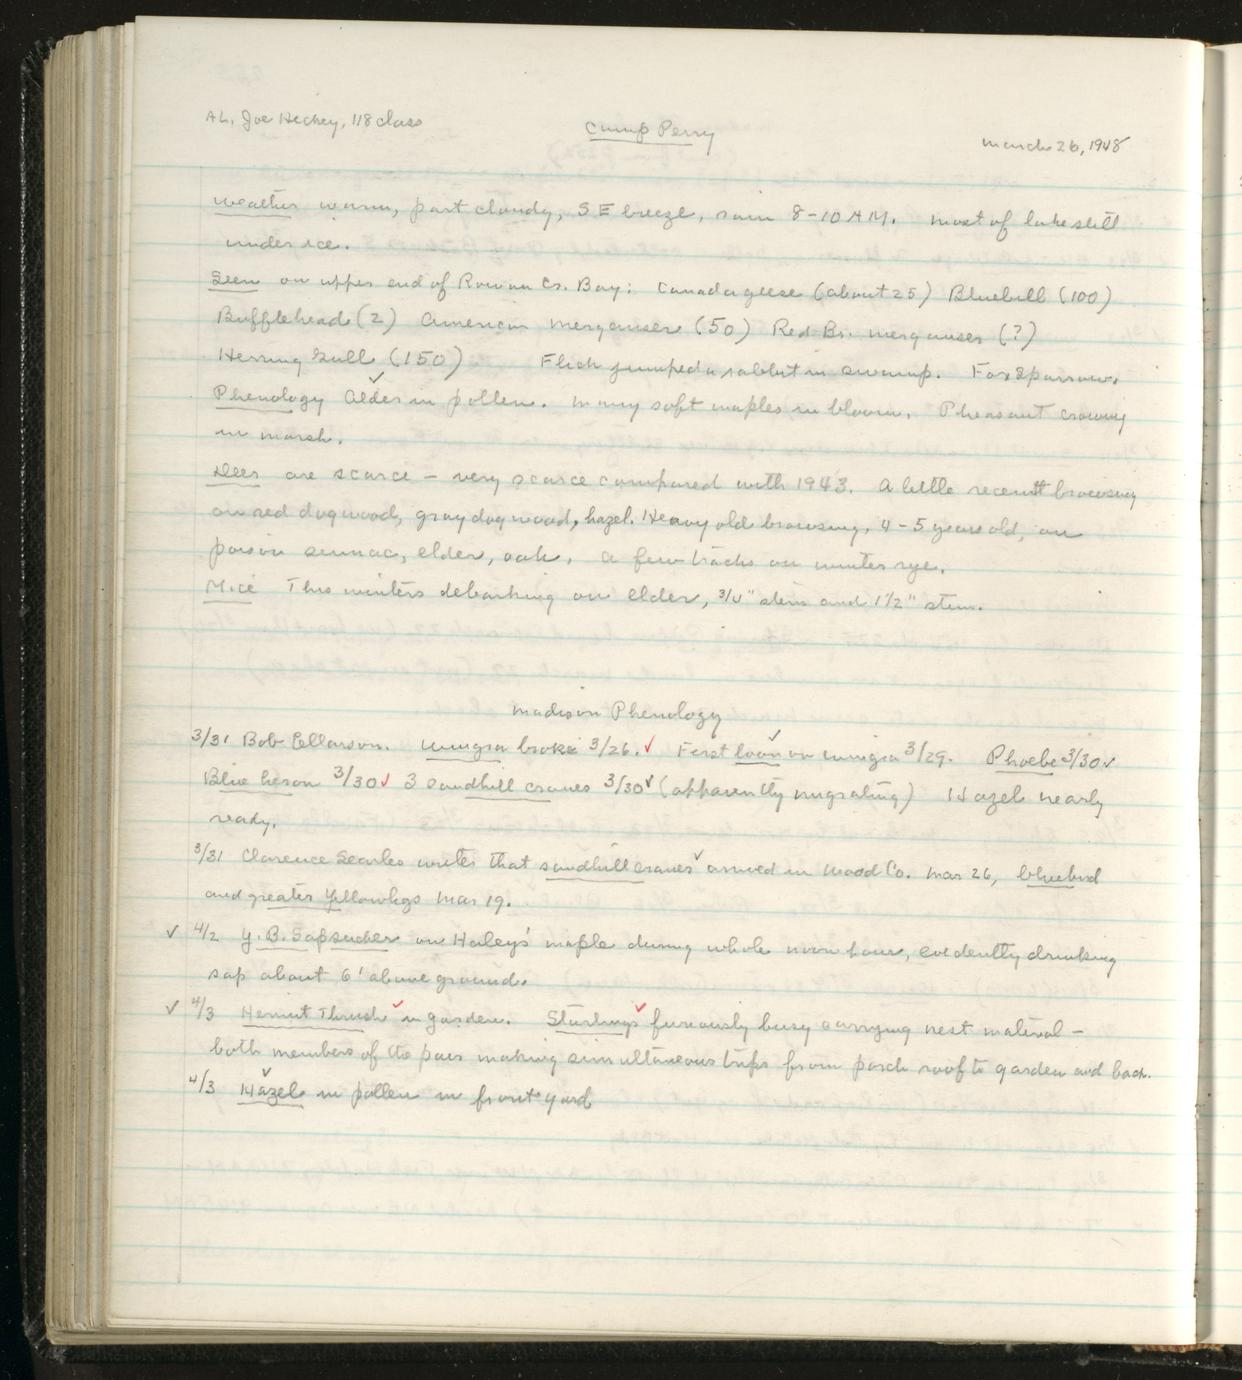 AL, Joe Hickey, 118 class
Camp Perry
March 26, 1948
Weather warm, part cloudy, SE breeze, rain 8-10 AM. Most of lake still
under ice.
Seen on upper end of Rowan Cr. Bay: Canada geese (about 25) Bluebill (100)
Bufflehead (2) American merganser (50) Red Br. merganser (?)
Herring Gull (150) Flick jumped a rabbit in swamp. Fox Sparrow.
Phenology Alder in pollen. Many soft maples in bloom. Pheasant crowing
in marsh.
Deer are scarce - very scarce compared with 1943. A little recent browsing
on red dogwood, gray dogwood, hazel. Heavy old browsing, 4-5 years old, on
poison sumac, elder, oak. A few tracks on winter rye.
Mice This winters debarking on elder, 3/4" stem and 1 1/2" stem.
Madison Phenology
3/31 Bob Ellarson. Wingra broke 3/26. ✓ First loon ✓ on Wingra 3/29. Phoebe 3/30 ✓
Blue heron 3/30 ✓ 3 Sandhill cranes 3/30 ✓ (apparently migrating) Hazel nearly
ready.
3/31 Clarence Searles writes that sandhill cranes ✓ arrived in Wood Co. Mar 26, bluebird
and greater Yellowlegs Mar 19.
✓ 4/2 Y. B. Sapsucker on Haley's maple during whole noon hour, evidently drinking
sap about 6' above ground.
✓ 4/3 Hermit Thrush ✓ in garden. Starlings ✓ furiously busy carrying nest material -
both members of the pair making simultaneous trips from porch roof to garden and back.
4/3 Hazel ✓ in pollen in front yard